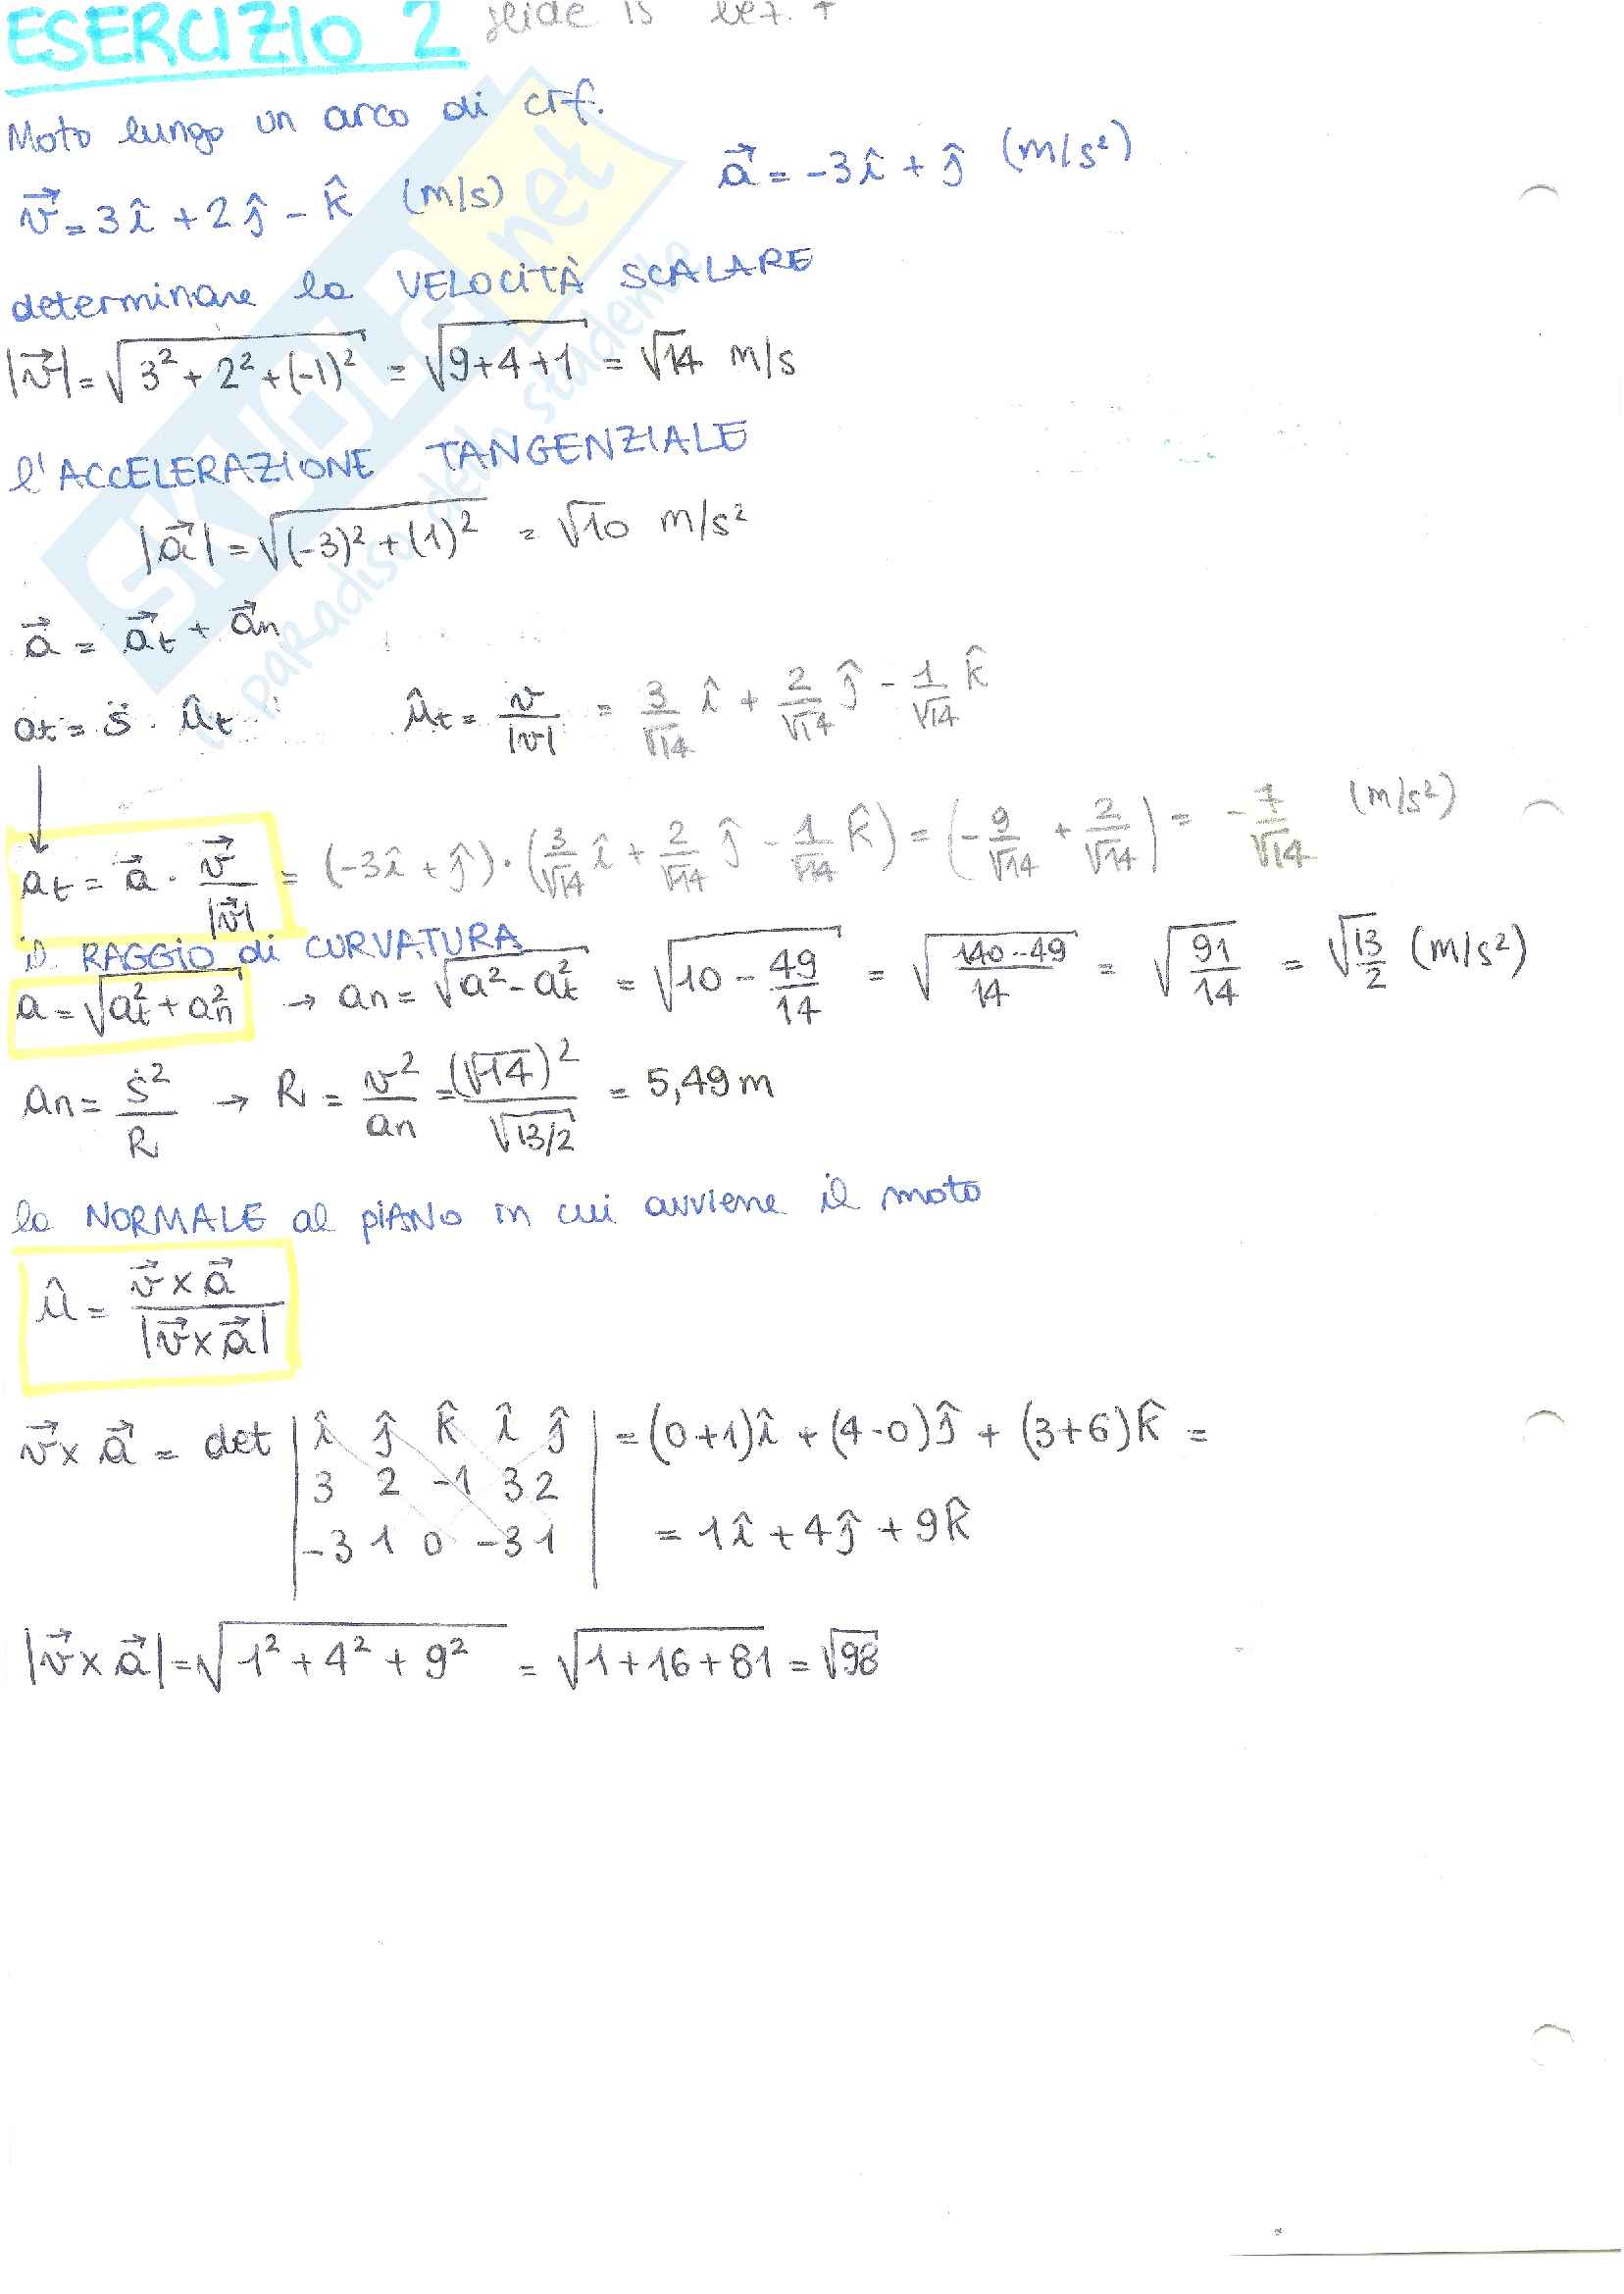 ESERCIZIO 2 slide 15 lez. 4
Moto lungo un arco di crf.
v⃗ = 3î + 2ĵ - k̂ (m/s) a⃗ = -3î + ĵ (m/s²)
determinare la VELOCITÀ SCALARE
|v⃗| = √(3² + 2² + (-1)²) = √(9+4+1) = √14 m/s
l'ACCELERAZIONE TANGENZIALE
|a⃗| = √((-3)² + (1)²) = √10 m/s²
a⃗ = a⃗t + a⃗n
at = s̈ · ût ût = v/|v| = 3/√14 î + 2/√14 ĵ - 1/√14 k̂
↓
at = a⃗ · v⃗/|v⃗| = (-3î + ĵ) · (3/√14 î + 2/√14 ĵ - 1/√14 k̂) = (-9/√14 + 2/√14) = -7/√14 (m/s²)
il RAGGIO di CURVATURA
a = √(at² + an²) → an = √(a² - at²) = √(10 - 49/14) = √((140-49)/14) = √(91/14) = √(13/2) (m/s²)
an = ṡ²/R → R = v²/an = (√14)²/√(13/2) = 5,49 m
la NORMALE al PIANO in cui avviene il moto
û = v⃗ x a⃗ / |v⃗ x a⃗|
v⃗ x a⃗ = det | î ĵ k̂ î ĵ | = (0+1)î + (4-0)ĵ + (3+6)k̂ =
3 2 -1 3 2
-3 1 0 -3 1 = 1î + 4ĵ + 9k̂
|v⃗ x a⃗| = √(1² + 4² + 9²) = √(1+16+81) = √98
SKUOLA.net
il paradiso dello studente